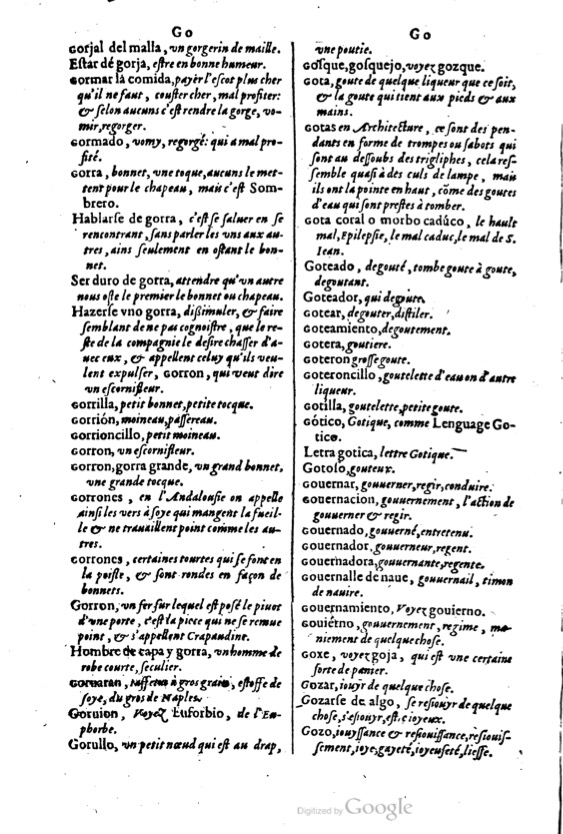 Go
Gorjal del malla, vn gorgerin de maille.
Estar dé gorja, estre en bonne humeur.
Gormar là comida, payer l'escot plus cher
qu'il ne faut, couster cher, mal profiter:
& selon aucuns c'est rendre la gorge, vo-
mir, regorger.
Gormado, vomy, regorgé: qui a mal pro-
fité.
Gorra, bonnet, vne toque, aucuns le met-
tent pour le chapeau, mais c'est Som-
brero.
Hablarse de gorra, c'est se saluer en se
rencontrant, sans parler les vns aux au-
tres, ains seulement en ostant le bon-
net.
Ser duro de gorra, attendre qu'vn autre
nous oste le premier le bonnet ou chapeau.
Hazerse vno gorra, dissimuler, & faire
semblant de ne pas cognoistre, que le re-
ste de la compagnie le desire chasser d'a-
uec eux, & appellent celuy qu'ils veu-
lent expulser, Gorron, qui veut dire
vn escornifleur.
Gorrilla, petit bonnet, petite tocque.
Gorrión, moineau, passereau.
Gorrioncillo, petit moineau.
Gorron, vn escornifleur.
Gorron, gorra grande, vn grand bonnet,
vne grande tocque.
Gorrones, en l'Andalousie on appelle
ainsi les vers à soye qui mangent la fueil-
le & ne trauaillent point comme les au-
tres.
Gorrones, certaines tourtes qui se font en
la poisle, & sont rondes en façon de
bonnets.
Gorron, vn fer sur lequel est posé le piuot
d'vne porte, c'est la piece qui ne se remue
point, & s'appellent Crapaudine.
Hombre de capa y gorra, vn homme de
robe courte, seculier.
Goruaran, taffetas à gros grain, estoffe de
soye, du gros de Naples.
Goruion, Voyez Euforbio, de l'Eu-
phorbe.
Gorullo, vn petit nœud qui est au drap,
Go
vne poutie.
Gosque, gosquejo, voyez gozque.
Gota, goute de quelque liqueur que ce soit,
& la goute qui tient aux pieds & aux
mains.
Gotas en Architecture, ce sont des pen-
dants en forme de trompes ou sabots qui
sont au dessoubs des trigliphes, cela res-
semble quasi à des culs de lampe, mais
ils ont la pointe en haut, cõme des goutes
d'eau qui sont prestes à tomber.
Gota coral o morbo cadúco, le hault
mal, Epilepsie, le mal caduc, le mal de S.
Iean.
Goteado, degouté, tombe goute à goute,
degoutant.
Goteador, qui degoute.
Gotear, degouter, distiler.
Goteamiento, degoutement.
Gotera, goutiere.
Goteron grosse goute.
Goteroncillo, goutelette d'eau on d'autre
liqueur.
Gotilla, goutelette, petite goute.
Gótico, Gotique, comme Lenguage Go-
tico.
Letra gotica, lettre Gotique.
Gotoso, gouteux.
Gouernar, gouuerner, regir, conduire.
Gouernacion, gouuernement, l'action de
gouuerner & regir.
Gouernado, gouuerné, entretenu.
Gouernador, gouuerneur, regent.
Gouernadora, gouuernante, regente.
Gouernalle de naue, gouuernail, timon
de nauire.
Gouernamiento, Voyez gouierno.
Gouiérno, gouuernement, regime, ma-
niement de quelque chose.
Goxe, voyez goja, qui est vne certaine
sorte de panier.
Gozar, iouyr de quelque chose.
Gozarse de algo, se resiouyr de quelque
chose, s'esiouyr, estre ioyeux.
Gozo, iouyssance & resiouissance, resiouis-
sement, ioye, gayeté, ioyeuseté, liesse.
Digitized by Google